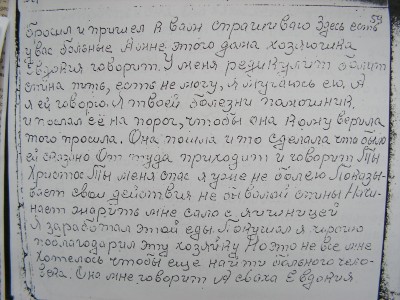 59
бросил и пришел к вам спрашиваю Здесь есть
у вас больные А мне этого дома хозяюшка
Евдокия говорит. У меня редикулит болит
спина пить, есть не могу, я мучаюсь ею. А
я ей говорю. Я твоей болезни помошник,
и послал её на порог, чтобы она кому верила
того просила. Она пошла и то сделала что было
ей сказано От туда приходит и говорит Ты
Христос Ты меня спас я уже не болею Показы-
вает свои действия не бывалой спины Начи-
нает жарить мне сало с яичницей
Я заработал этой еды. Покушал я хорошо
поблагодарил эту хозяйку Но это не все мне
хотелось чтобы еще найти больного чело-
века. Она мне говорит А сваха Евдокия